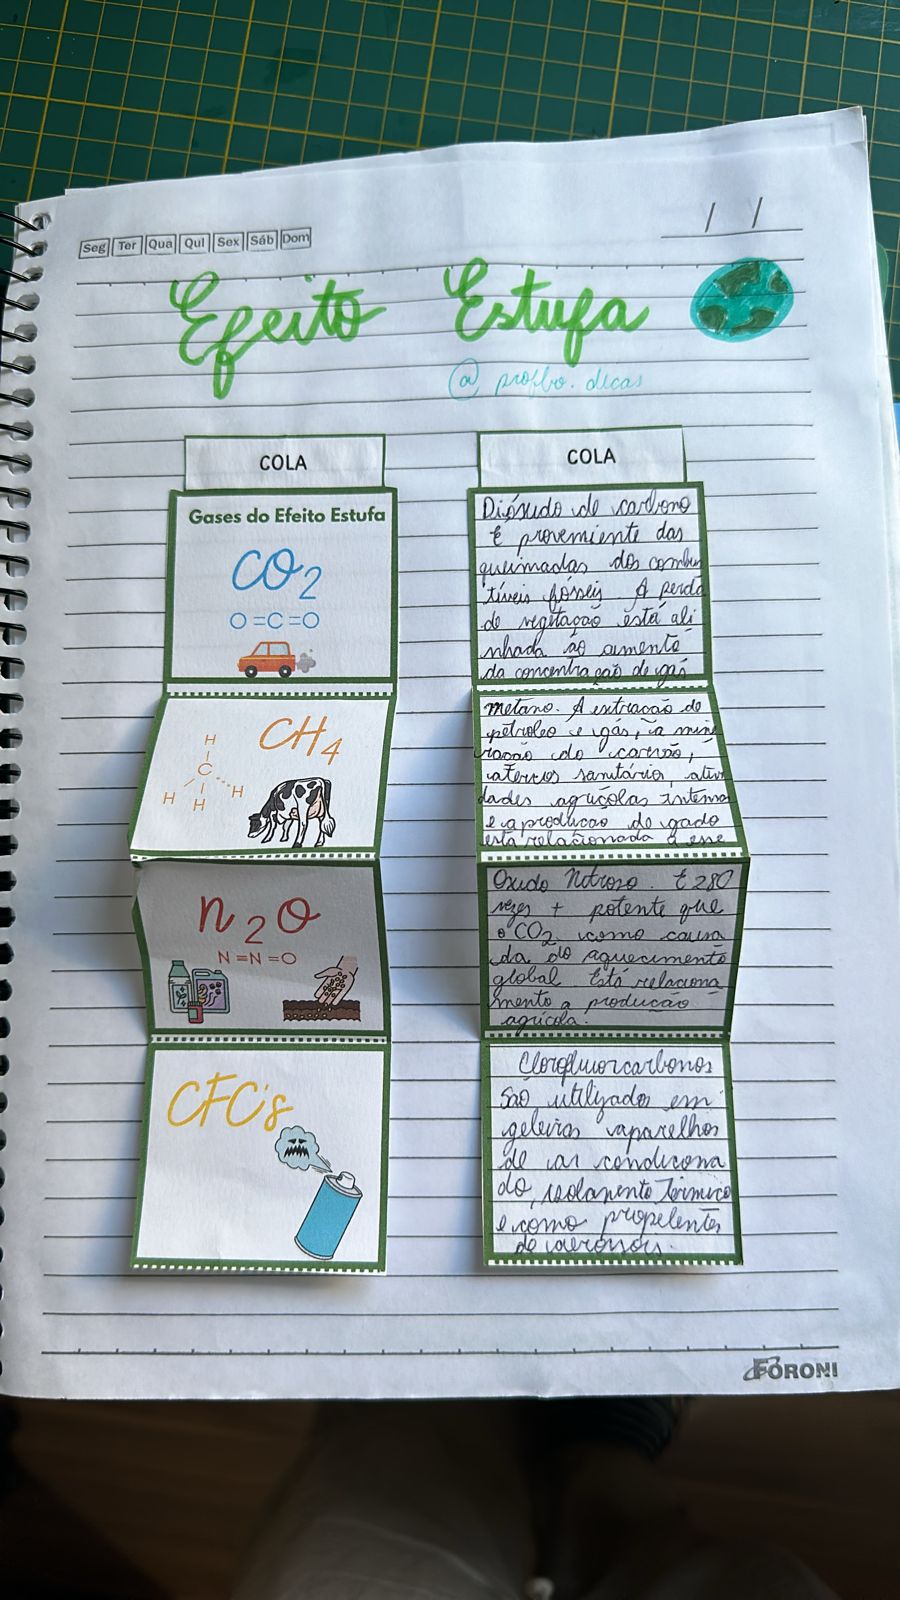 Seg Ter Qua Qui Sex Sáb Dom
/ /
Efeito Estufa
@profbo.dicas
COLA
Gases do Efeito Estufa
CO2
O=C=O
CH4
H
C
H H H
N2O
N=N=O
CFC's
COLA
Dióxido de carbono
É proveniente das
queimadas dos combus
tíveis fósseis. A perda
de vegetação está ali
nhada ao aumento
da concentração de gás
metano. A extração de
petróleo e gás, a mine
ração do carvão,
aterros sanitário, ativi
dades agrícolas intensa
e a produção de gado
está relacionada a esse
Oxido Nitroso. É 280
vezes + potente que
o CO2 como causa
da do aquecimento
global Está relaciona
mento a produção
agrícola.
Clorofluorcarbonos
São utilizados em
geleiras aparelhos
de ar condiciona
do, isolamento Térmico
e como propelentes
de aerossóis.
FORONI